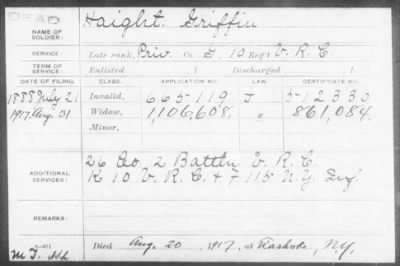 DEAD
NAME OF SOLDIER: Haight, Griffin
SERVICE: Late rank, Priv. Co. G, 10 Reg't V. R. C.
TERM OF SERVICE: Enlisted 1 Discharged 1
DATE OF FILING. CLASS. APPLICATION NO. LAW. CERTIFICATE NO.
1888 July 21 Invalid, 665119 J 512330
1917. Aug. 31 Widow, 1,106,608. 861,084.
Minor,
ADDITIONAL SERVICES: 26 Co. 2 Battln V. R. C.
K 10 V. R. C. + F 115 N.Y. Inf
REMARKS:
Died Aug. 20, 1917, at , N.Y.